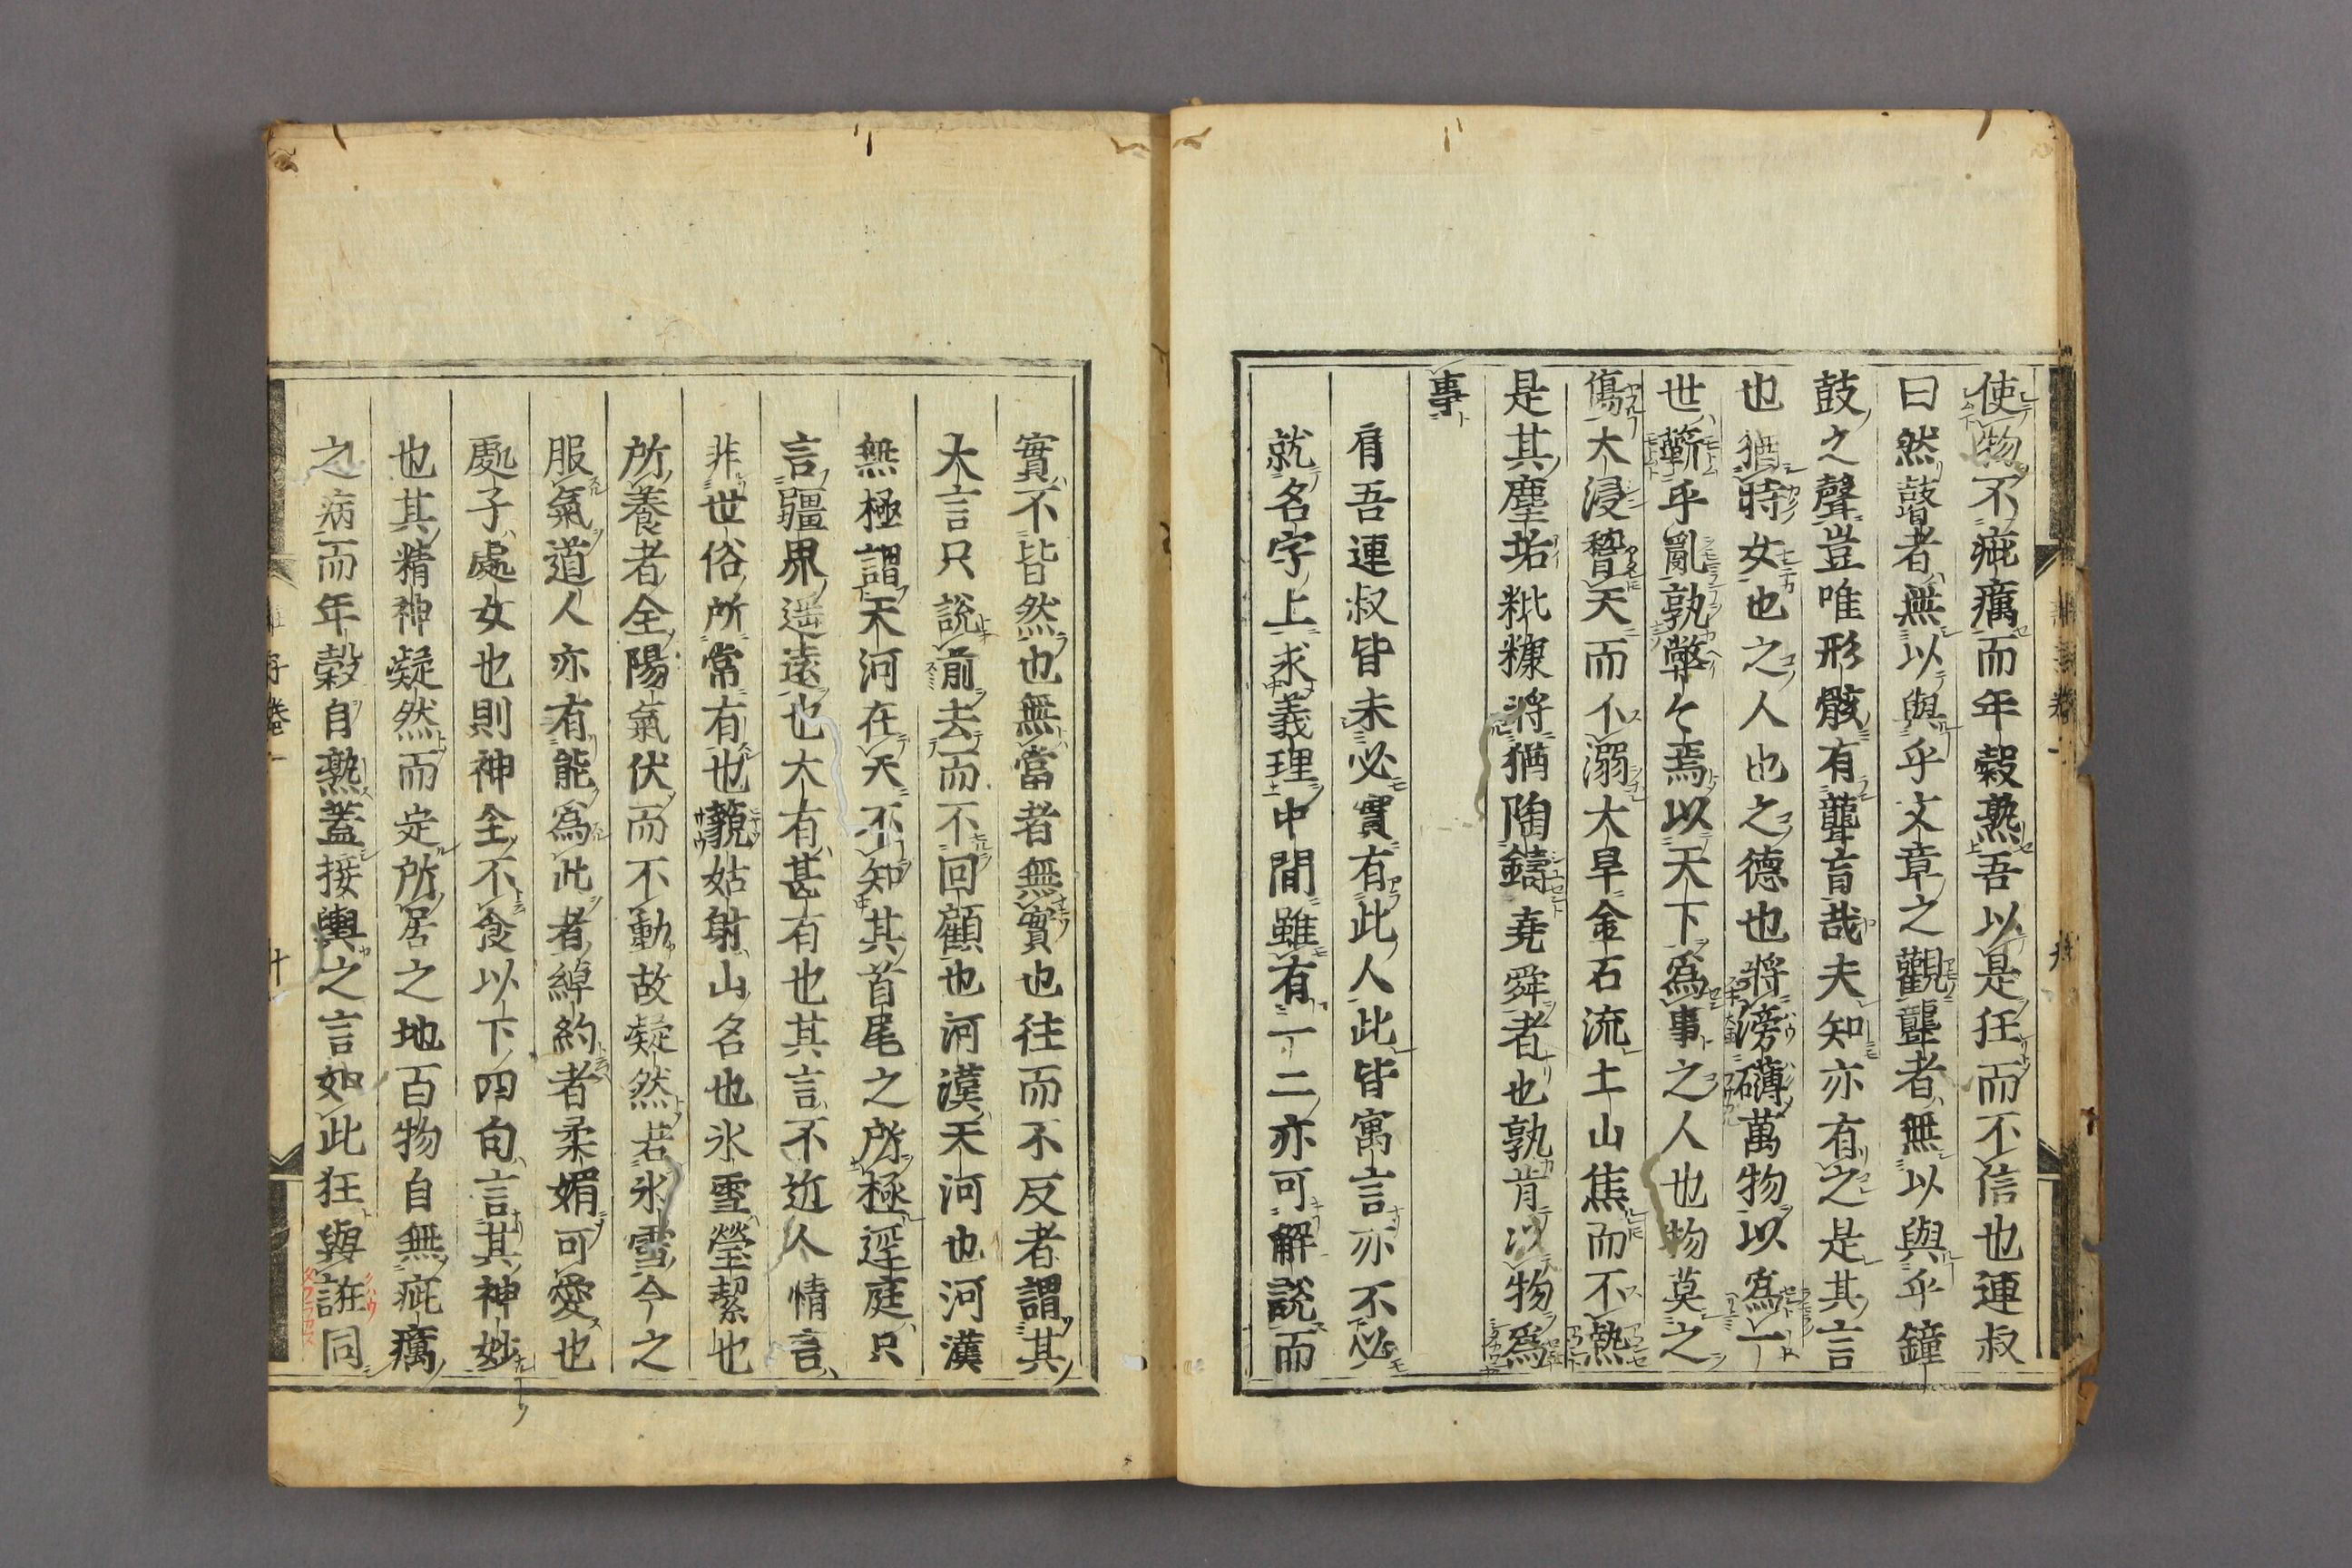 使物不疵癘而年穀熟吾以是狂而不信也連叔
曰然瞽者無以與乎文章之觀聾者無以與乎鐘
鼓之聲豈唯形骸有聾盲哉夫知亦有之是其言
也猶時女也之人也之德也將滂礴萬物以爲一
世蘄乎亂孰弊〻焉以天下爲事之人也物莫之
傷大浸稽天而不溺大旱金石流土山焦而不熱
是其塵垢粃糠將猶陶鑄堯舜者也孰肯以物爲
事
肩吾連叔皆未必實有此人此皆寓言亦不必
就名字上求義理中間雖有一二亦可解說而
實不皆然也無當者無實也往而不反者謂其
大言只說前去而不回顧也河漢天河也河漢
無極謂天河在天不知其首尾之所極逕庭只
言疆界遥遠也大有甚有也其言不近人情言
非世俗所常有也藐姑射山名也氷雪瑩潔也
所養者全陽氣伏而不動故凝然若氷雪今之
服氣道人亦有能爲此者綽約者柔媚可愛也
處子處女也則神全不食以下四句言其神妙
也其精神凝然而定所居之地百物自無疵癘
之病而年穀自熟蓋接輿之言如此狂與誑同